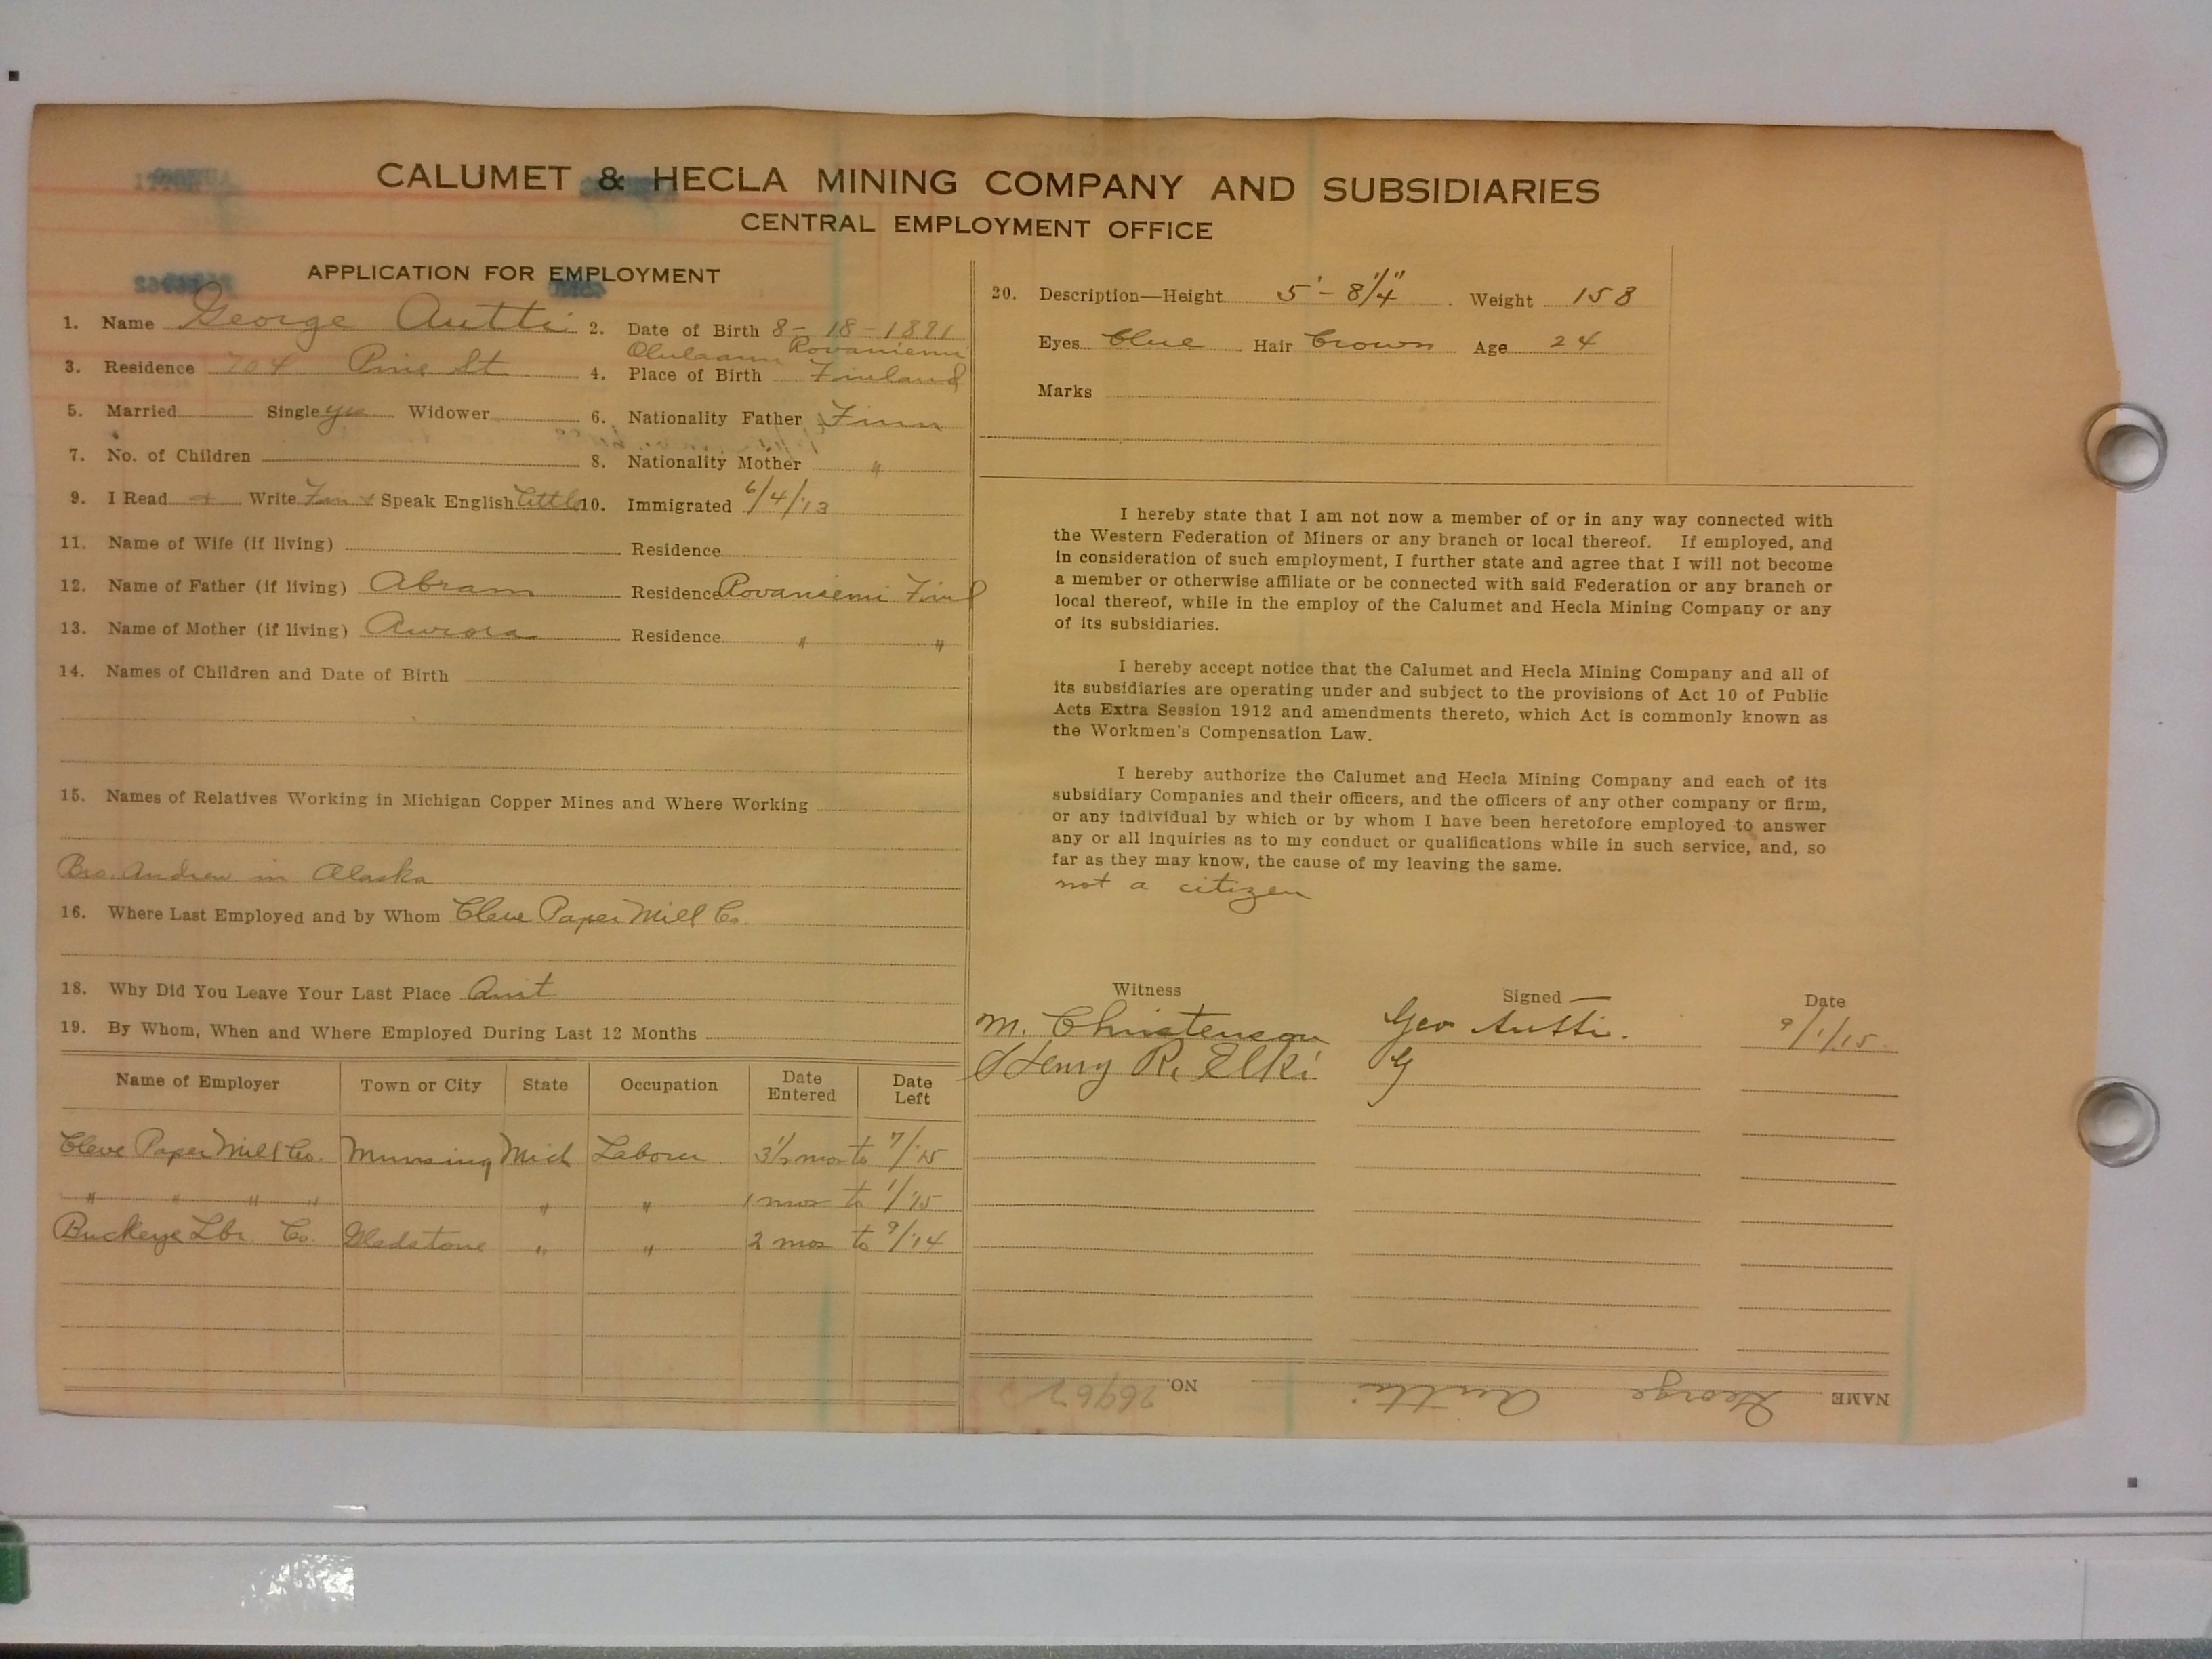 CALUMET & HECLA MINING COMPANY AND SUBSIDIARIES
CENTRAL EMPLOYMENT OFFICE
APPLICATION FOR EMPLOYMENT
1. Name George Autti 2. Date of Birth 8-18-1891
Rovaniemi
3. Residence 704 Pine St 4. Place of Birth Finland
5. Married Single yes Widower 6. Nationality Father Finn
7. No. of Children 8. Nationality Mother "
9. I Read + Write Finn & Speak English little 10. Immigrated 6/4/13
11. Name of Wife (if living) Residence
12. Name of Father (if living) Abram Residence Rovaniemi Finl
13. Name of Mother (if living) Aurora Residence " "
14. Names of Children and Date of Birth
15. Names of Relatives Working in Michigan Copper Mines and Where Working
Bro. Andrew in Alaska
16. Where Last Employed and by Whom Cleve Paper Mill Co.
18. Why Did You Leave Your Last Place Quit
19. By Whom, When and Where Employed During Last 12 Months
Name of Employer Town or City State Occupation Date Entered Date Left
Cleve Paper Mill Co. Munsing Mich Laborer 3 1/2 mos to 7/15
" " " " " " 1 mos to 1/15
Buckeye Lbr. Co. Gladstone " " 2 mos to 9/14
20. Description—Height 5' - 8 1/4" Weight 158
Eyes blue Hair brown Age 24
Marks
I hereby state that I am not now a member of or in any way connected with
the Western Federation of Miners or any branch or local thereof. If employed, and
in consideration of such employment, I further state and agree that I will not become
a member or otherwise affiliate or be connected with said Federation or any branch or
local thereof, while in the employ of the Calumet and Hecla Mining Company or any
of its subsidiaries.
I hereby accept notice that the Calumet and Hecla Mining Company and all of
its subsidiaries are operating under and subject to the provisions of Act 10 of Public
Acts Extra Session 1912 and amendments thereto, which Act is commonly known as
the Workmen's Compensation Law.
I hereby authorize the Calumet and Hecla Mining Company and each of its
subsidiary Companies and their officers, and the officers of any other company or firm,
or any individual by which or by whom I have been heretofore employed to answer
any or all inquiries as to my conduct or qualifications while in such service, and, so
far as they may know, the cause of my leaving the same.
not a citizen
Witness Signed Date
M. Christenson Geo Autti. 9/1/15.
Henry R. Elki G
NAME George Autti NO. 26962